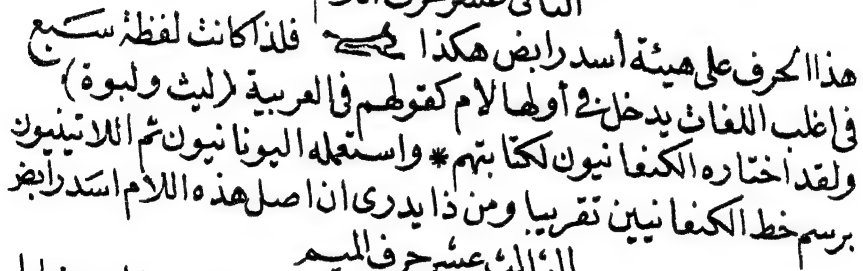 الثاني عشر حرف اللام
هذا الحرف على هيئة أسد رابض هكذا فلذا كانت لفظة سَبع
فى اغلب اللغات يدخل فى أولها لام كقولهم فى العربية (ليث ولبوة)
ولقد اختاره الكنعانيون لكتابتهم * واستعمله اليونانيون ثم اللاتينيون
برسم خط الكنعانيين تقريبا ومن ذا يدرى ان اصل هذه اللام اسَد رابض
الثالث عشر حرف الميم